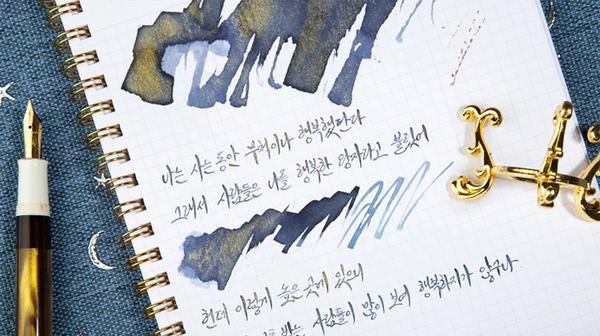 나는 사는동안 무척이나 행복했단다
그래서 사람들은 나를 행복한 왕자라고 불렀어
헌데 이렇게 높은 곳에 있으니
사람들이 많이 보여 행복하지가 않구나